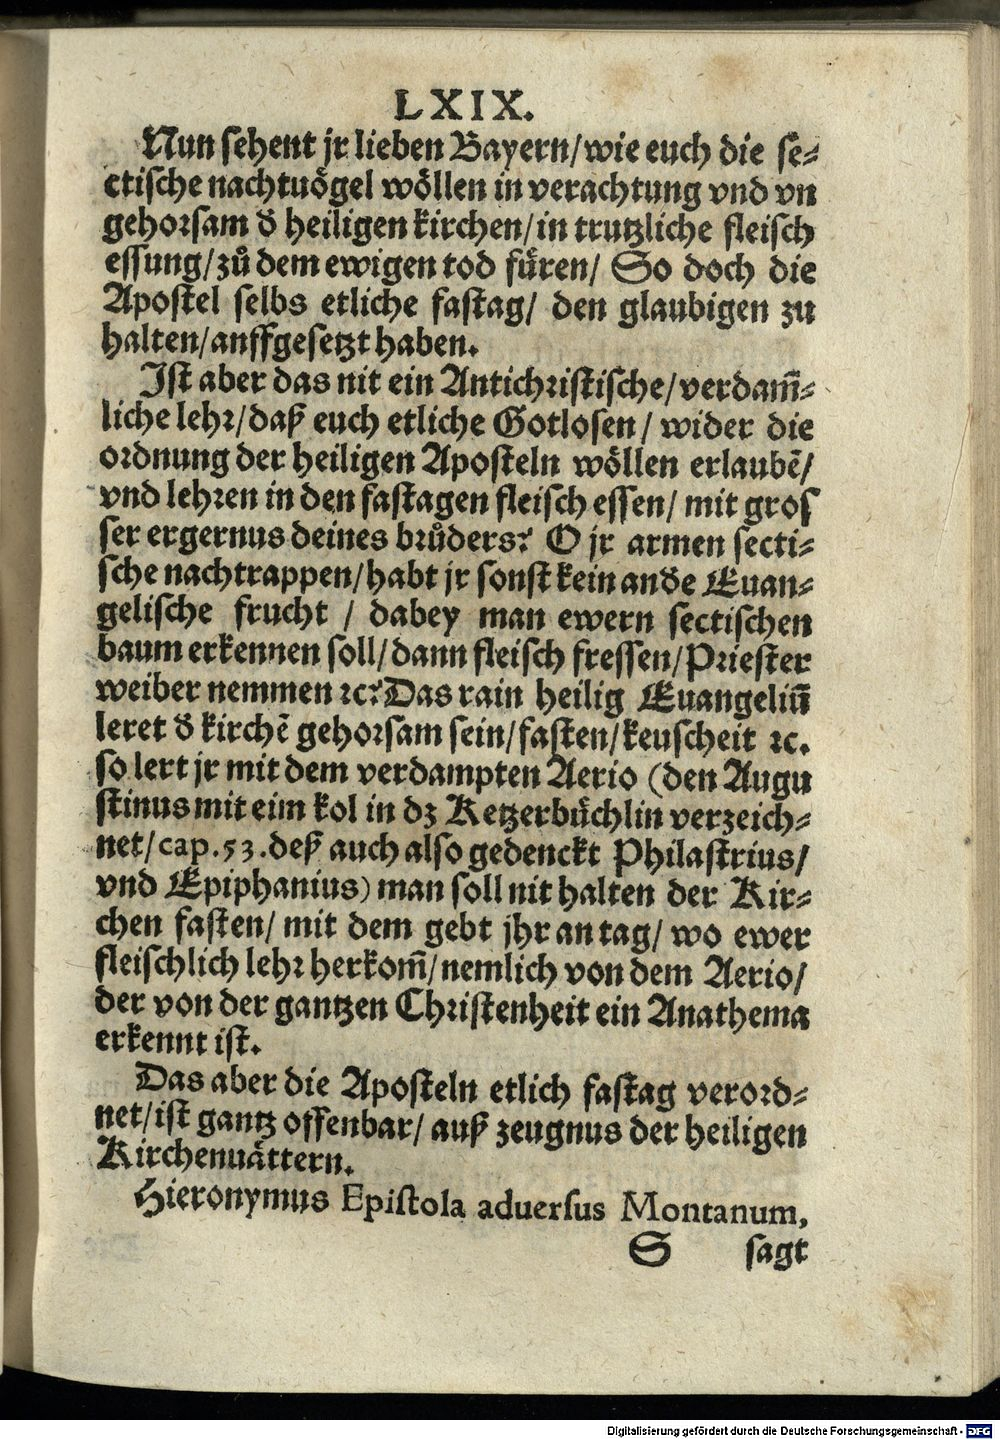 LXIX.
Nun sehent jr lieben Bayern/wie euch die se⸗
ctische nachtuögel wöllen in verachtung vnd vn
gehorsam d̕ heiligen kirchen/in trutzliche fleisch
essung/zů dem ewigen tod füren/ So doch die
Apostel selbs etliche fastag/ den glaubigen zu
halten/anffgesetzt haben.
Ist aber das nit ein Antichristische/verdam̄⸗
liche lehr/daß euch etliche Gotlosen/ wider die
ordnung der heiligen Aposteln wöllen erlaubē/
vnd lehren in den fastagen fleisch essen/ mit gros
ser ergernus deines brůders? O jr armen secti⸗
sche nachtrappen/habt jr sonst kein and̕e Euan⸗
gelische frucht / dabey man ewern sectischen
baum erkennen soll/dann fleisch fressen/Priester
weiber nemmen ꝛc? Das rain heilig Euangeliū
leret d̕ kirchē gehorsam sein/fasten/keuscheit ꝛc.
so lert jr mit dem verdampten Aerio (den Augu
stinus mit eim kol in dz Ketzerbüchlin verzeich⸗
net/cap.53.deß auch also gedenckt Philastrius/
vnd Epiphanius) man soll nit halten der Kir⸗
chen fasten/ mit dem gebt jhr an tag/ wo ewer
fleischlich lehr herkom̄/nemlich von dem Aerio/
der von der gantzen Christenheit ein Anathema
erkennt ist.
Das aber die Aposteln etlich fastag verord⸗
net/ist gantz offenbar/ auß zeugnus der heiligen
Kirchenuättern.
Hieronymus Epistola aduersus Montanum,
S sagt
Digitalisierung gefördert durch die Deutsche Forschungsgemeinschaft - DFG